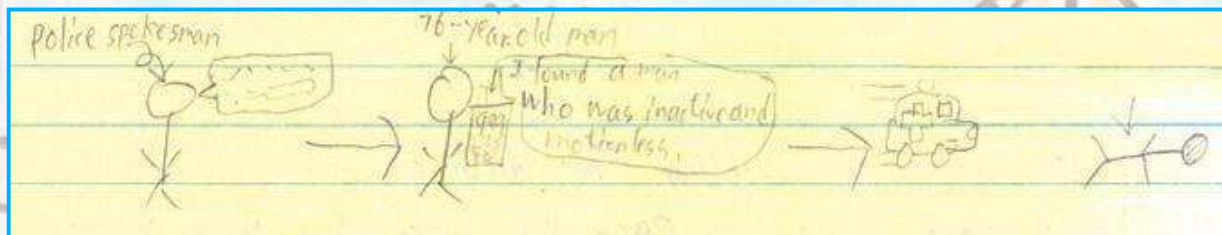 Police spokesman
76-year old man
I found a man
who was inactive and
motionless.